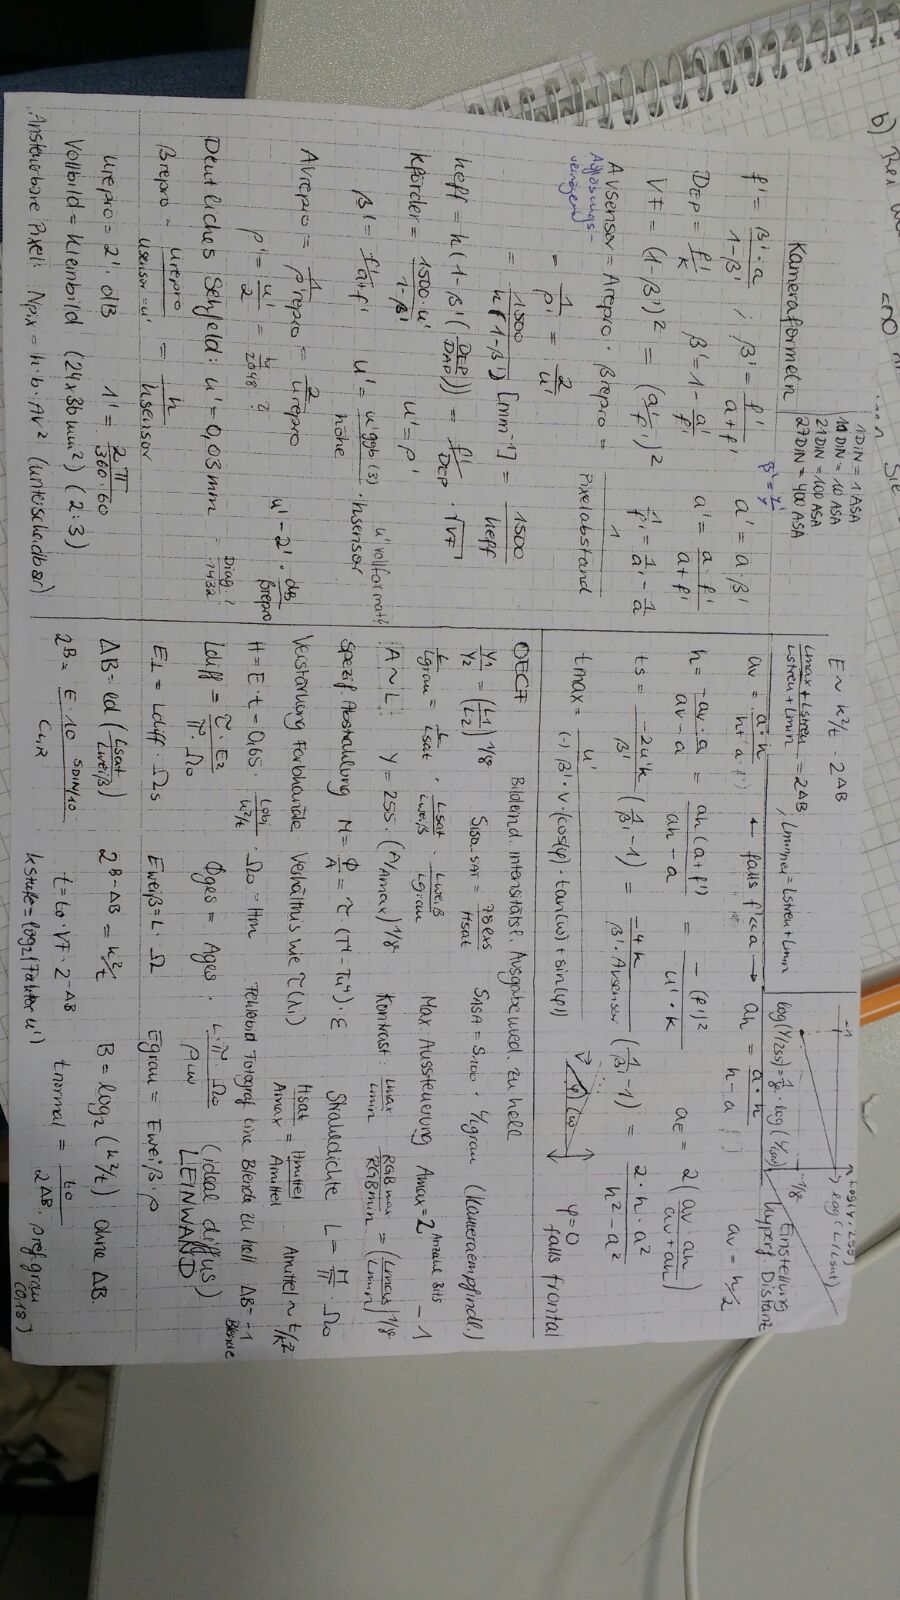 b)
Kameraformeln
1 DIN = 1 ASA
10 DIN = 10 ASA
21 DIN = 100 ASA
27 DIN = 400 ASA
f' = β'·a / 1-β' ; β' = f' / a+f' a' = a β'
β' = y' / y
DEP = f' / k β' = 1 - a' / f' a' = a·f' / a+f'
VF = (1-β')² = (a' / f')² 1 / f' = 1 / a' - 1 / a
AVsensor = Arepro · βrepro = 1 / Pixelabstand
Auflösungs-
vermögen
= 1 / ρ' = 2 / u'
= 1500 / k(1-β') [mm-1] = 1500 / keff
keff = k (1-β' (DEP / DAP)) = f' / DEP · √VF
kförder = 1500·u' / 1-β' u' = ρ'
β' = f' / a+f' u' = u'ggb (3) / höhe · hsensor
u' vollformat?
AVrepro = 1 / ρ'repro = 2 / urepro
ρ' = u' / 2 = b / 2048 ? u' - 2' · dB / βrepro
Deutliches Sehfeld: u' = 0,03mm = Diag.? / 1432
βrepro = urepro / usensor=u' = h / hsensor
urepro = 2' · dB 1' = 2π / 360·60
Vollbild = Kleinbild (24x36mm²) (2:3)
Ansteuerbare Pixel: Npx = h·b·AV² (unterscheidbar)
E ~ k²/t · 2ΔB
Lmax + Lstreu / Lstreu + Lmin = 2ΔB ; Lmin,neu = Lstreu + Lmin
av = a·h / h+a(·f') ← falls f'<<a → ah = a·h / h-a
av = h/2
h = -av·a / av-a = ah(a+f') / ah-a = -(f')² / u'·k
ae = 2(av·ah / av+ah)
ts = -2u'k / β' (1 / β' -1) = -4k / β'·AVsensor (1 / β' -1) = 2·h·a² / h²-a²
tmax = u' / (-)β'·v·(cos(φ)·tan(ω)+sin(φ)) φ=0 falls frontal
-1
log(Y/255)
log(L/Lsat)
1/γ
log(Y/255) = 1/γ · log(L/Lsat)
Einstellung
hyperf. Distanz
OECF Bildeind. intensitätsl. Ausgabemed. zu hell
Y1 / Y2 = (L1 / L2)1/γ Siso.sat = 78lxs / Hsat SASA = S100 · 1/Lgrau (Kameraempfindl.)
L / Lgrau = L / Lsat · Lsat / Lweiß · Lweiß / Lgrau Max. Aussteuerung Amax = 2 Anzahl Bits - 1
A ~ L! Y = 255·(A/Amax)1/γ Kontrast: Lmax / Lmin RGBmax / RGBmin = (Lmax / Lmin)1/γ
Spezif. Abstrahlung M = Φ / A = τ (T⁴ - Tu⁴)·ε Strahldichte L = M / π · Ω0
Verstärkung Farbkanäle Verhältnis wie τ(λi) Hsat / Amax = Hmittel / Amittel Amittel ~ t/k²
H = E·t = 0,65 · Lobj / k²/t · Ω0 = Hm Fehlbild Fotograf eine Blende zu hell ΔB = -1 Blende
Ldiff = τ·E2 / π·Ω0 Φges = Ages · L·π·Ω0 / ρLW (ideal diffus) LEINWAND
E⊥ = Ldiff · Ωs Eweiß = L·Ω Egrau = Eweiß·ρ
ΔB = ld(Lsat / Lweiß) 2B-ΔB = k²/t B = log2 (k²/t) ohne ΔB.
2B = E·10 SDIN/10 / CLIR t = t0·VF·2-ΔB tnormal = t0 / 2ΔB · ρref.grau (0,18)
kstufe = log2(Faktor u')